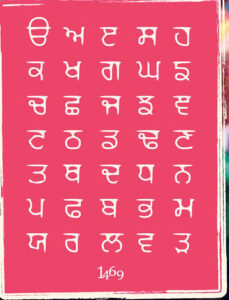 ੳ ਅ ੲ ਸ ਹ
ਕ ਖ ਗ ਘ ਙ
ਚ ਛ ਜ ਝ ਞ
ਟ ਠ ਡ ਢ ਣ
ਤ ਥ ਦ ਧ ਨ
ਪ ਫ ਬ ਭ ਮ
ਯ ਰ ਲ ਵ ੜ
1469